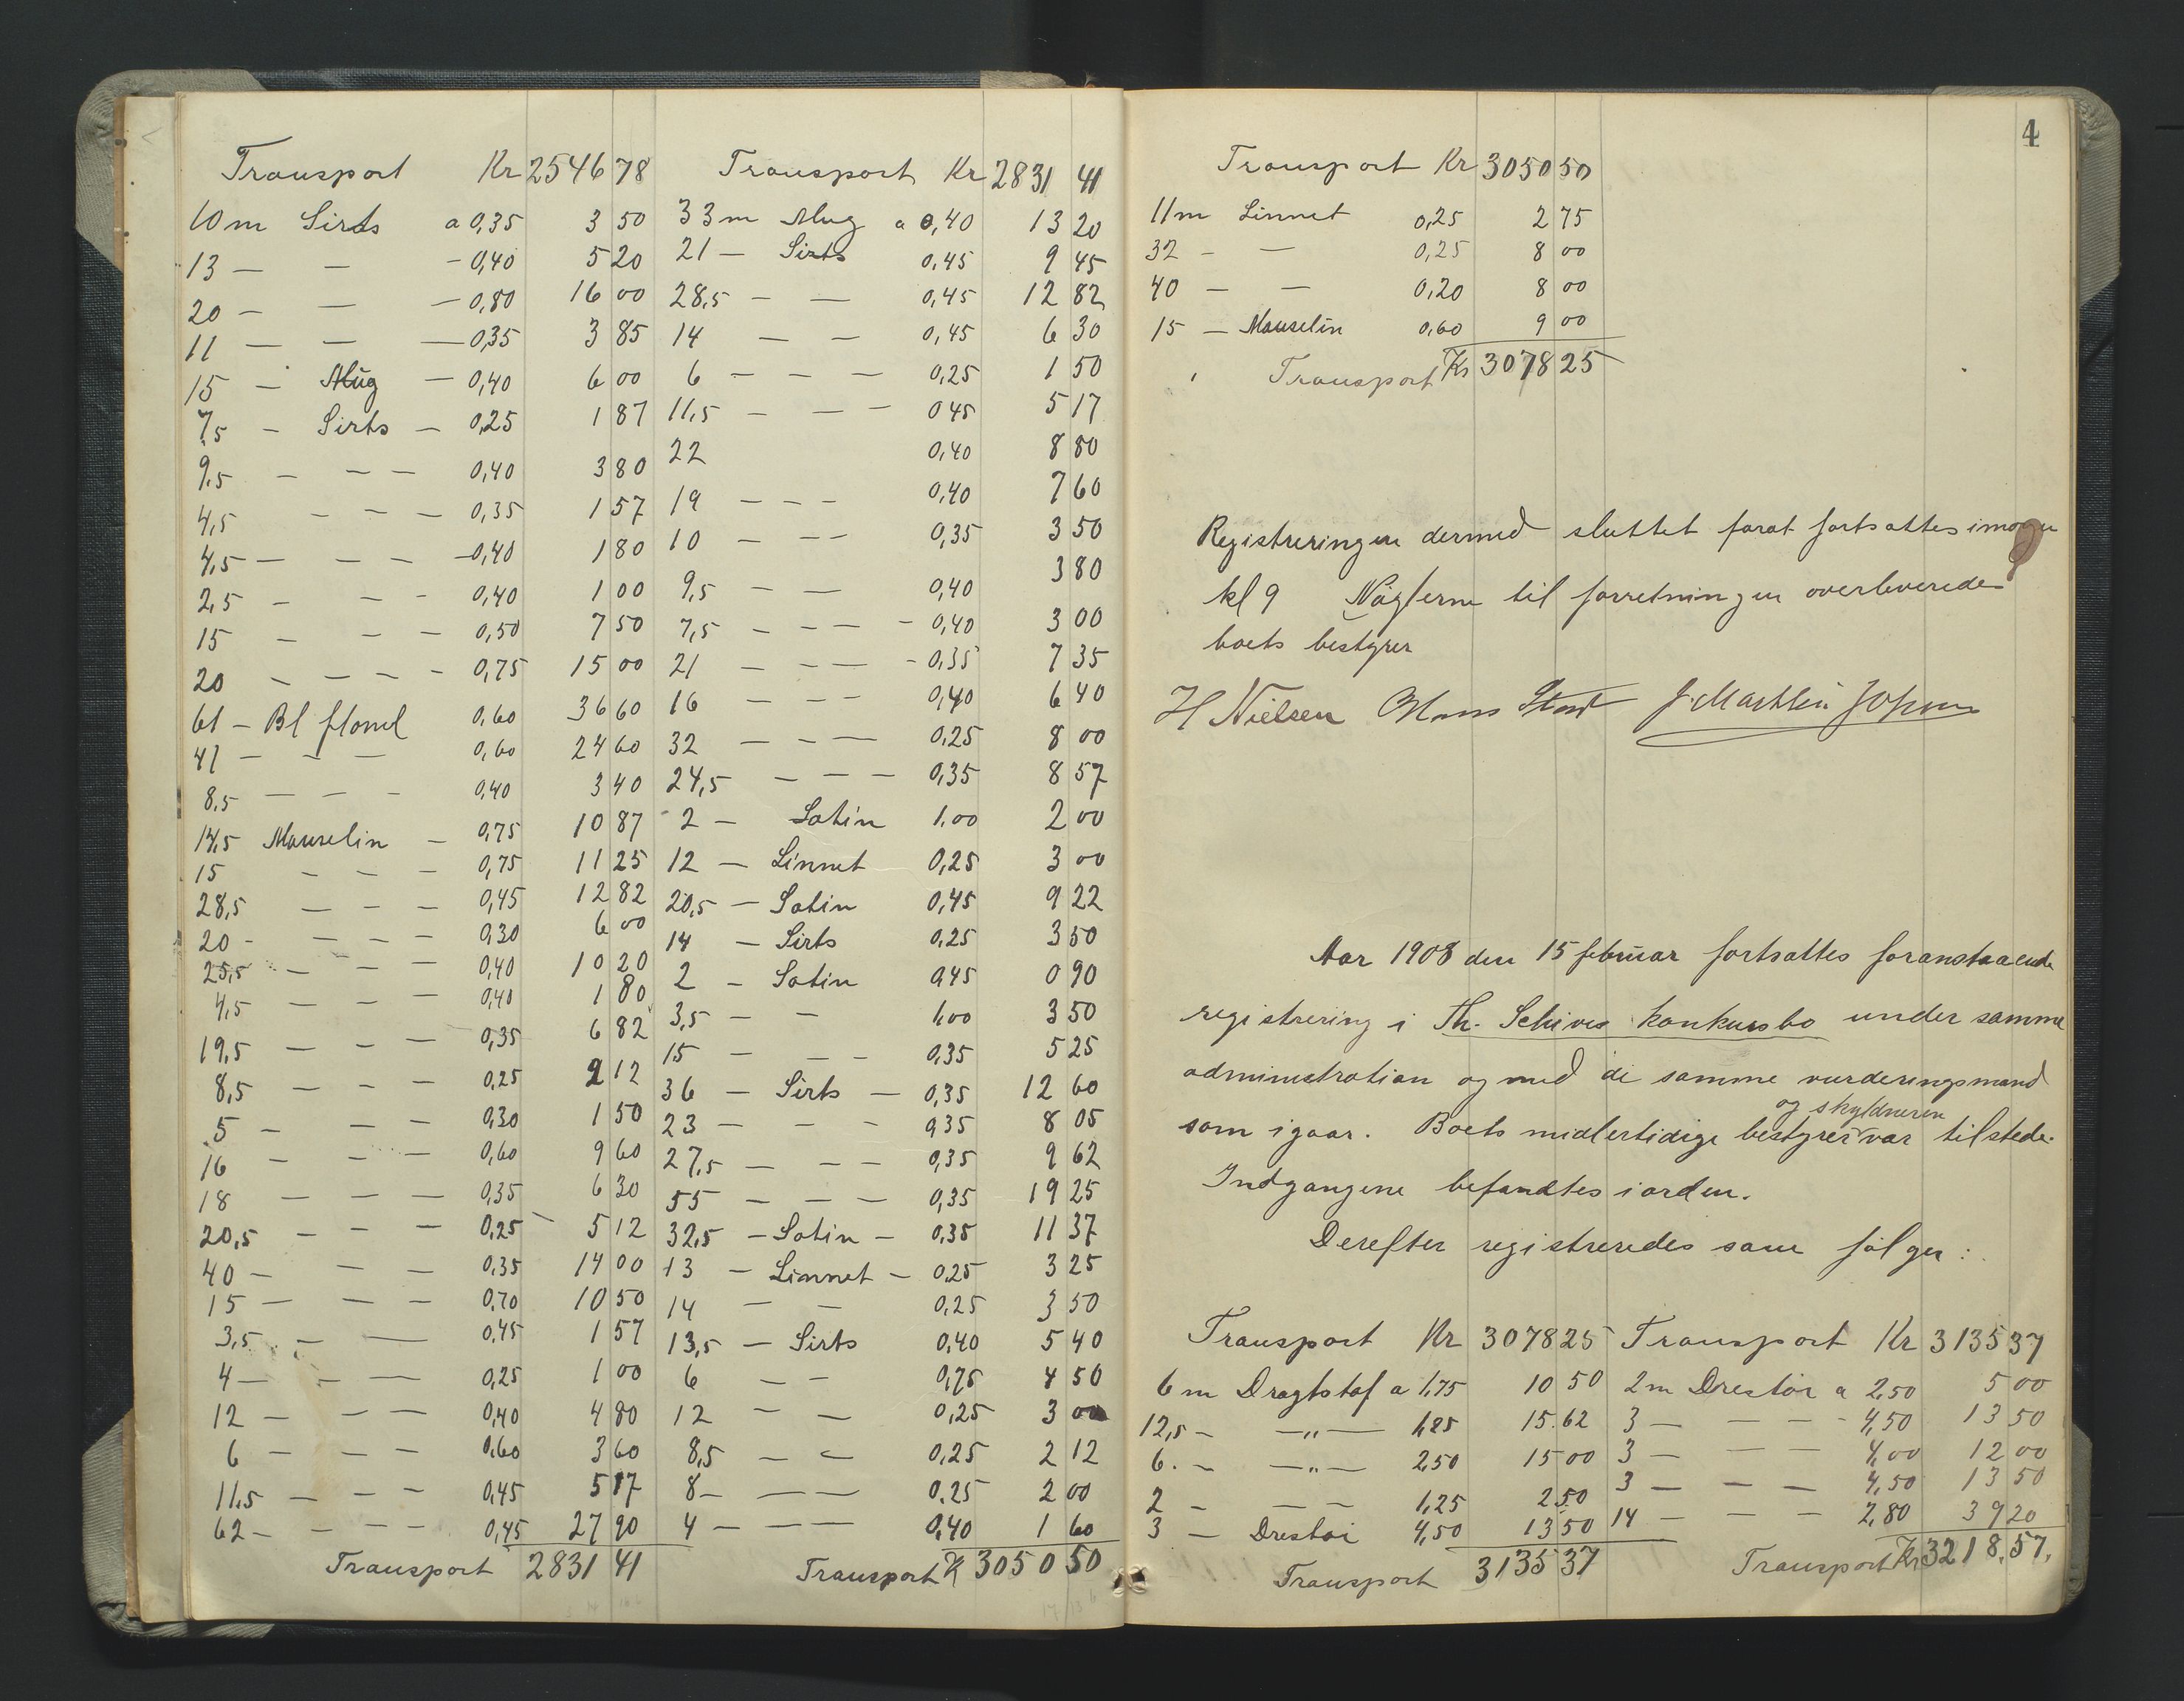 Transport Kr 2546 78
10 m Sirts a 0,35 3 50
13 — — - 0,40 5 20
20 — — — 0,80 16 00
11 — — — 0,35 3 85
15 — Mug — 0,40 6 00
7,5 — Sirts — 0,25 1 87
9,5 — — — 0,40 3 80
4,5 — — — 0,35 1 57
4,5 — — — 0,40 1 80
2,5 — — — 0,40 1 00
15 — — — 0,50 7 50
20 — — — 0,75 15 00
61 — Bl flonel 0,60 36 60
41 — — — 0,60 24 60
8,5 — — — 0,40 3 40
14,5 Mouselin — 0,75 10 87
15 — — — 0,75 11 25
28,5 — — — 0,45 12 82
20 — — — — 0,30 6 00
25,5 — — — 0,40 10 20
4,5 — — — 0,40 1 80
19,5 — — — 0,35 6 82
8,5 — — — 0,25 2 12
5 — — — 0,30 1 50
16 — — — 0,60 9 60
18 — — — 0,35 6 30
20,5 — — — 0,25 5 12
40 — — — 0,35 14 00
15 — — — 0,70 10 50
3,5 — — 0,45 1 57
4 — — — 0,25 1 00
12 — — — 0,40 4 80
6 — — — 0,60 3 60
11,5 — — — 0,45 5 17
62 — — — — 0,45 27 90
Transport 2831 41
Transport Kr 2831 41
33 m Mug a 0,40 13 20
21 — Sirts 0,45 9 45
28,5 — — 0,45 12 82
14 — — 0,45 6 30
6 — — — 0,25 1 50
11,5 — — — 0 45 5 17
22 0,40 8 80
19 — — — 0,40 7 60
10 — — — 0,35 3 50
9,5 — — 0,40 3 80
7,5 — — — - 0,40 3 00
21 — — — - 0,35 7 35
16 — — — 0,40 6 40
32 — — — 0,25 8 00
24,5 — — — 0,35 8 57
2 — Satin 1,00 2 00
12 — Linnet 0,25 3 00
20,5 — Satin 0,45 9 22
14 — Sirts 0,25 3 50
2 — Satin 0,45 0 90
3,5 — — 1,00 3 50
15 — — — 0,35 5 25
36 — Sirts — 0,35 12 60
23 — — — 0,35 8 05
27,5 — — — 0,35 9 62
55 — — — 0,35 19 25
32,5 — Satin — 0,35 11 37
13 — Linnet — 0,25 3 25
14 — — 0,25 3 50
13,5 — Sirts 0,40 5 40
6 — — 0,75 4 50
12 — — 0,25 3 00
8,5 — — 0,25 2 12
8 — — — 0,25 2 00
4 — — — 0,40 1 60
Transport K 3050 50
4
Transport Kr 3050 50
11 m Linnet 0,25 2 75
32 - — 0,25 8 00
40 - — 0,20 8 00
15 — Mouselin 0,60 9 00
Transport Kr 3078 25
Registreringen dermed sluttet forat fortsattes imorgen
kl 9 Nøglerne til forretningen overleveredes
boets bestyrer
H Nielsen
Aar 1908 den 15 februar fortsattes foranstaaende
registrering i Th. Schives konkursbo under samme
administration og med de samme vurderingsmænd
og skyldneren
som igaar. Boets midlertidige bestyrer var tilstede.
Indgangene befandtes i orden.
Derefter registreredes som følger:
Transport Kr 3078 25
6 m Dragtstof a 1,75 10 50
12,5 — —„— 1,25 15.62
6. — —„— 2,50 15 00
2 - — — 1,25 2 50
3 — Drestøi 4,50 13 50
Transport 3135 37
Transport Kr 3135 37
2 m Drestøi a 2,50 5 00
3 — — — - 4,50 13 50
3 — — — 4,00 12 00
3 — — — 4,50 13 50
14 — — — 2,80 39 20
Transport Kr 3218,57,